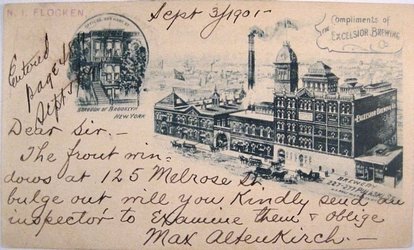 N. I. FLOCKEN
Sept 3/1901-
The Compliments of
EXCELSIOR BREWING
Co
OFFICES, 
Entered
page
Sept
BOROUGH OF BROOKLYN
NEW YORK
EXCELSIOR BREWING
BREWERY
Dear Sir -
The front win-
dows at 125 Melrose St.
bulge out will you Kindly send an
inspector to Examine them & oblige
Max Altenkirch -